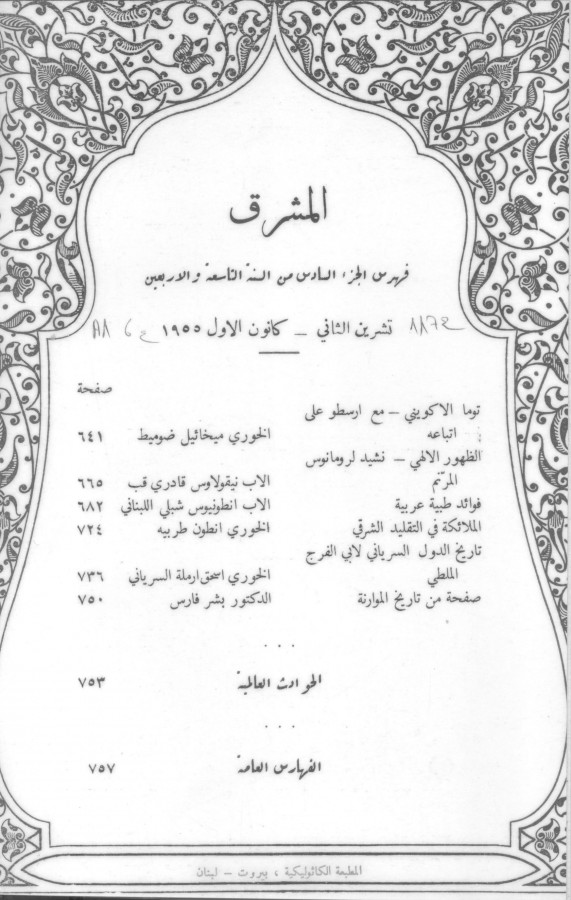 المشرق
فهرس الجزء السادس من السنة التاسعة والاربعين
تشرين الثاني – كانون الاول ١٩٥٥
صفحة
توما الاكويني – مع ارسطو على
اتباعه الخوري ميخائيل ضوميط ٦٤١
الظهور الالهي – نشيد لرومانوس
المرنم الاب نيقولاوس قادري قب ٦٦٥
فوائد طبية عربية الاب انطونيوس شبلي اللبناني ٦٨٢
الملائكة في التقليد الشرقي الخوري انطون طربيه ٧٢٤
تاريخ الدول السرياني لابي الفرج
الملطي الخوري اسحق ارملة السرياني ٧٣٦
صفحة من تاريخ الموارنة الدكتور بشر فارس ٧٥٠
. . .
الحوادث العالمية ٧٥٣
. . .
الفهارس العامة ٧٥٧
المطبعة الكاثوليكية ، بيروت – لبنان